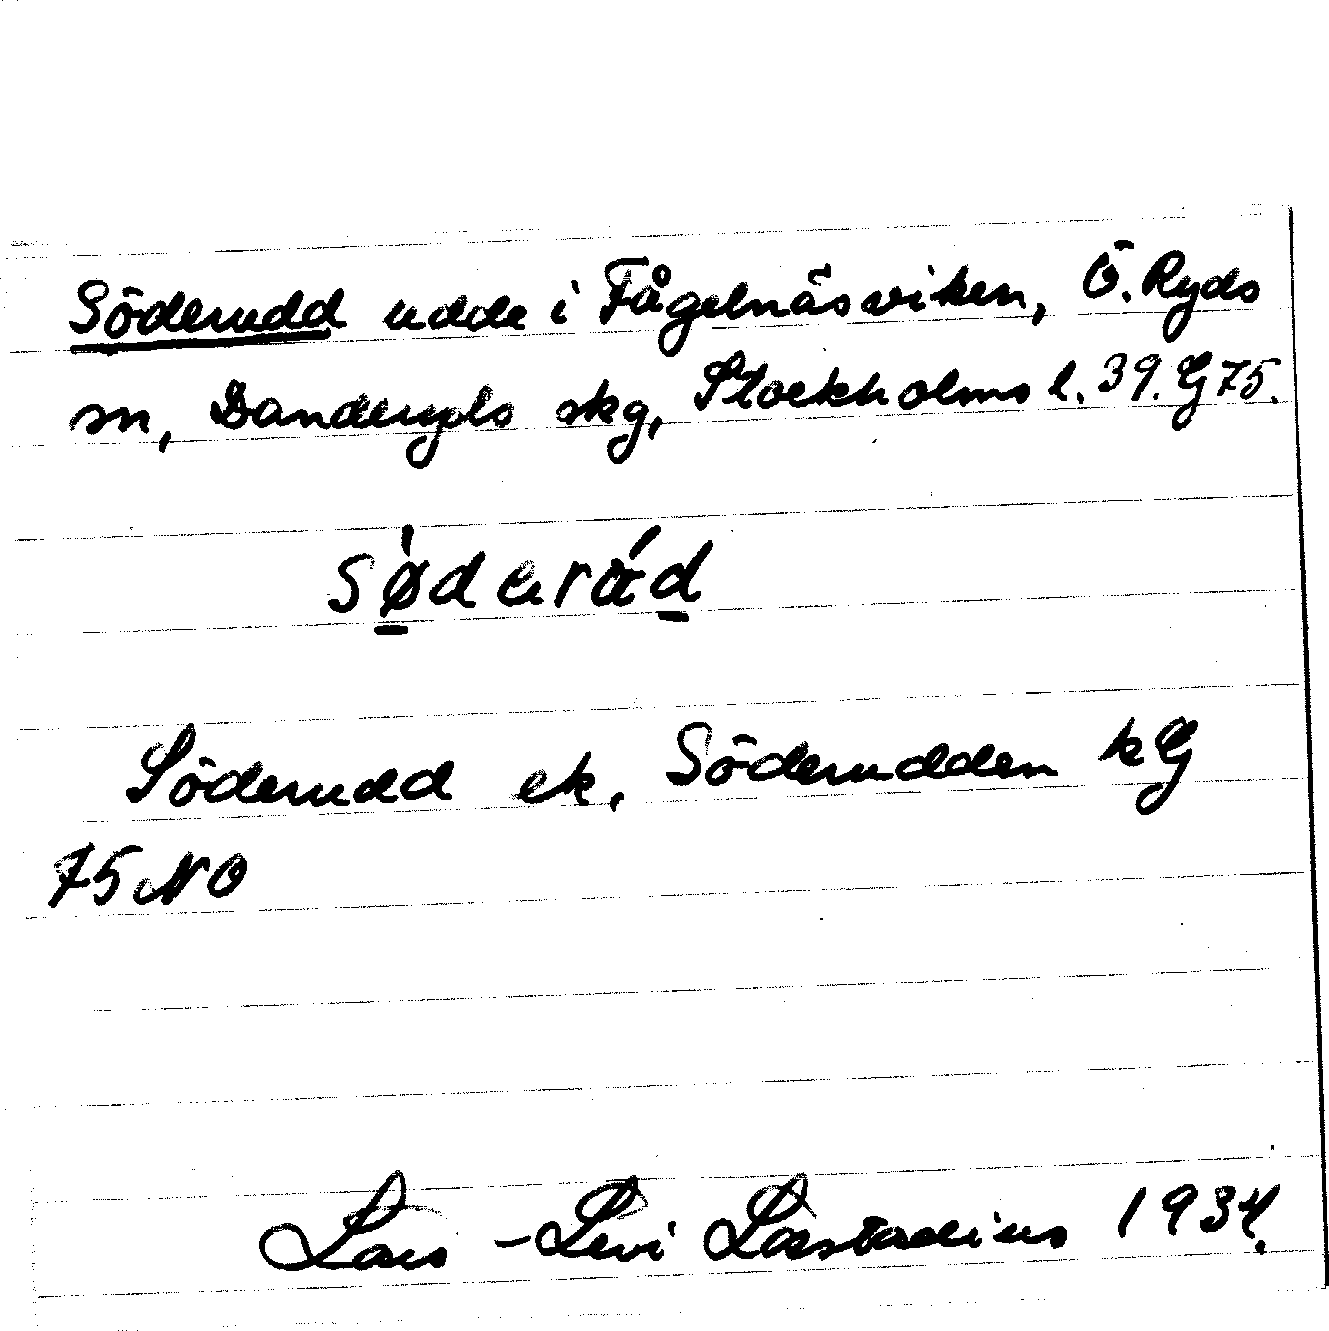 Söderudd udde i Fågelnäsviken, Ö. Ryds
sn, Danderyds skg, Stockholms l. 39. G 75.
Söderudd ek. Söderudden kG
75 NO
Lars-Levi Læstadius 1934.